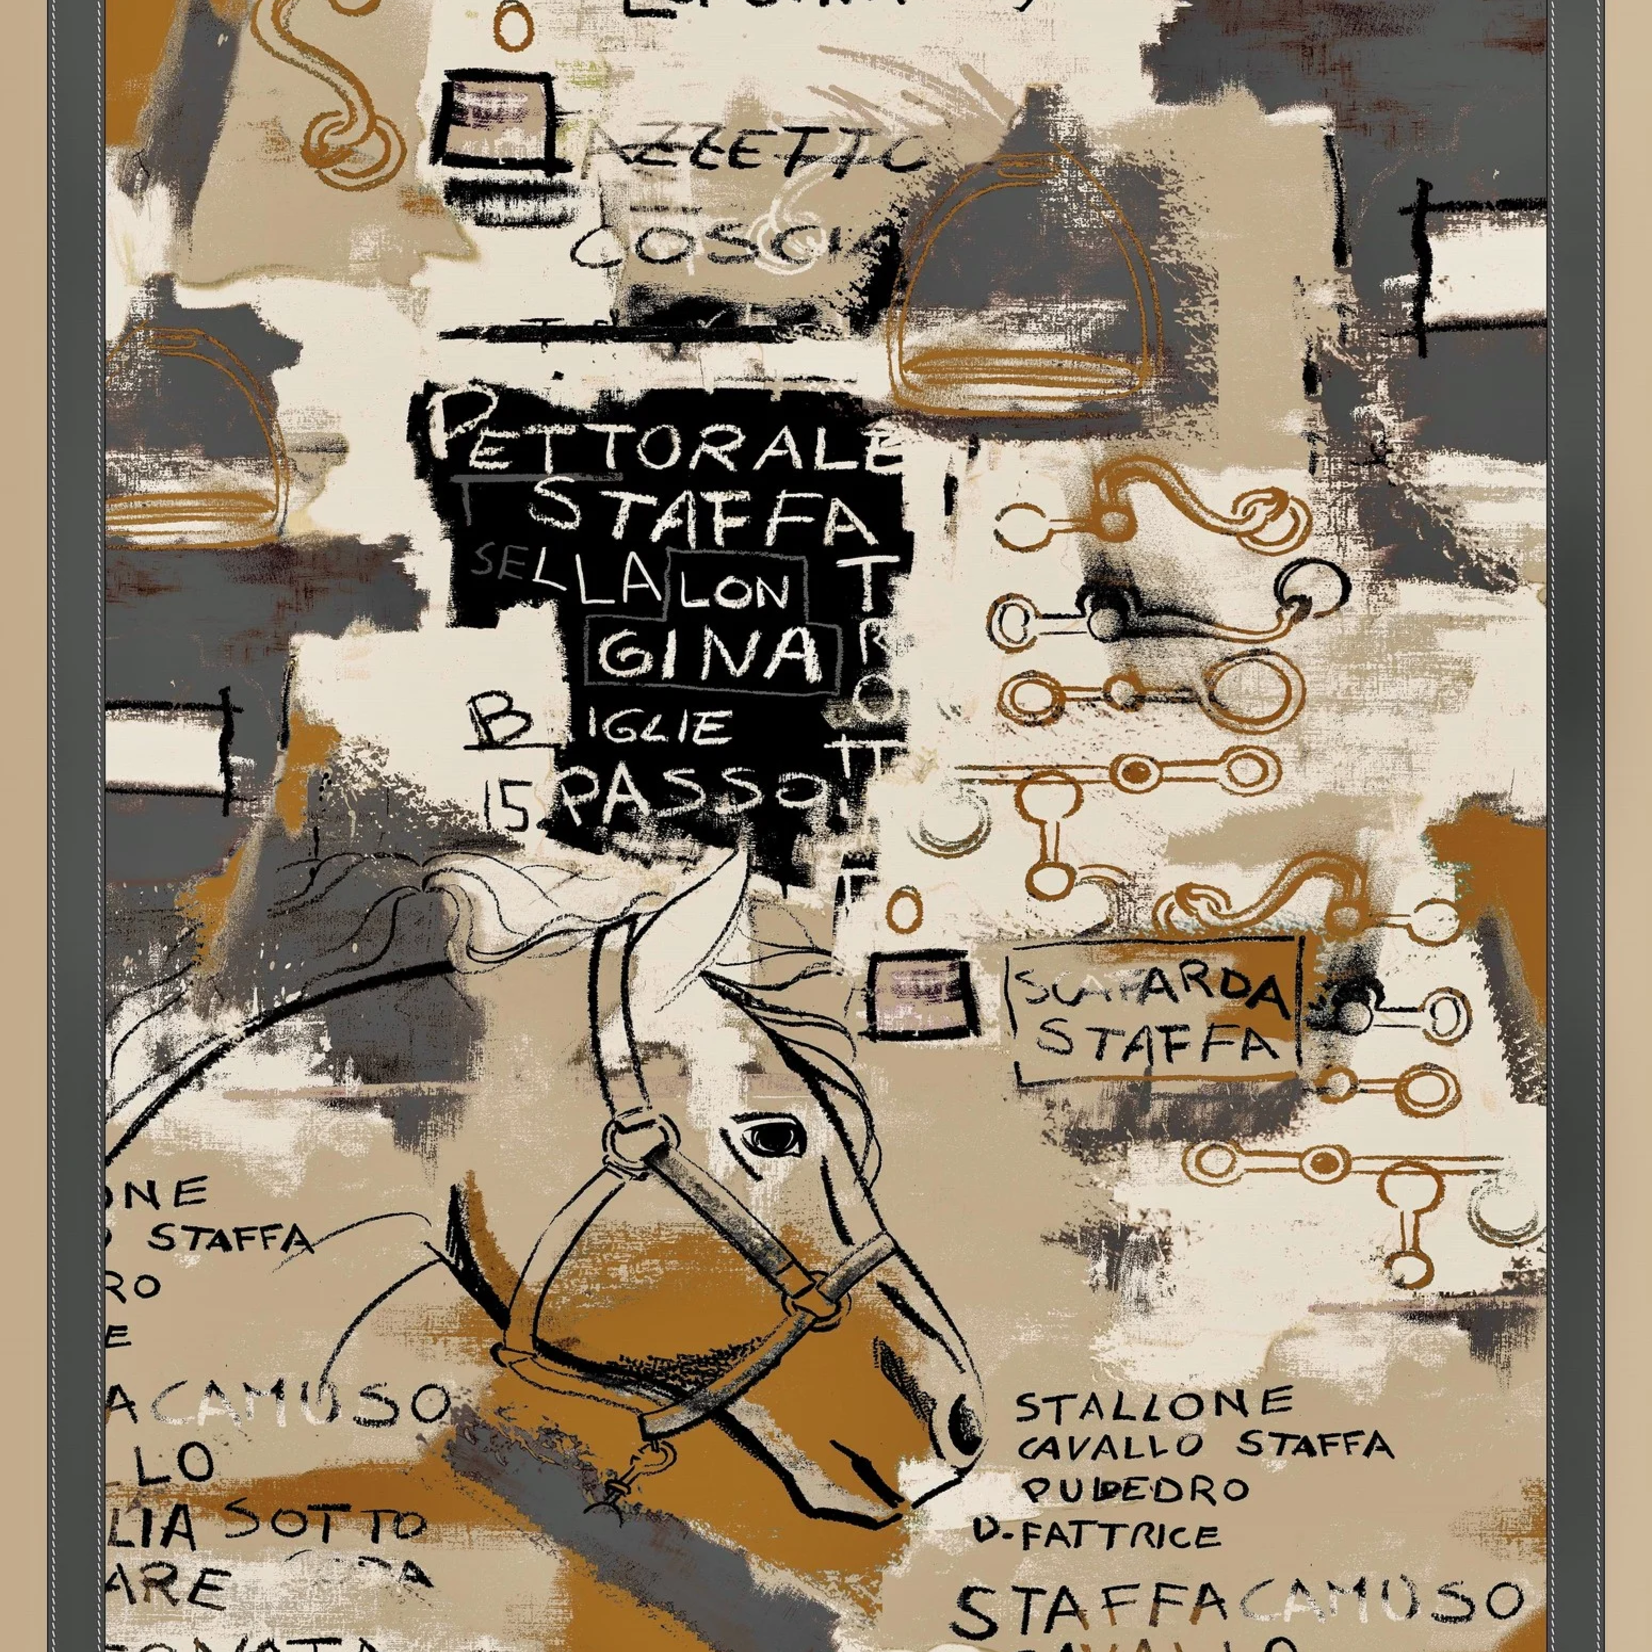 AZZETTO
COSCIA
PETTORALE
STAFFA
SELLA LON
GINA
TROTT
B IGLIE
15 PASSO
SCAFARDA
STAFFA
ONE
STAFFA
RO
E
A CAMUSO
LO
LIA SOTTO
ARE
STALLONE
CAVALLO STAFFA
PULEDRO
D-FATTRICE
STAFFA CAMUSO